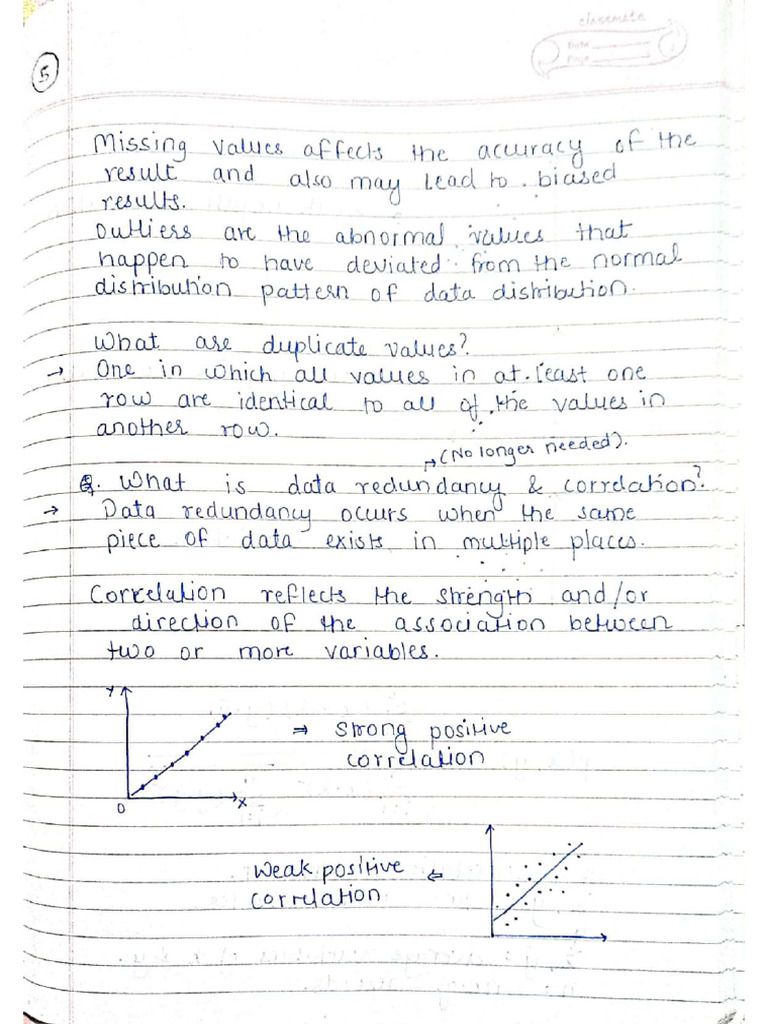 classmate
Date
Page
5
Missing values affects the accuracy of the
result and also may lead to biased
results.
Outliers are the abnormal values that
happen to have deviated from the normal
distribution pattern of data distribution.
What are duplicate values?
→ One in which all values in at least one
row are identical to all of the values in
another row.
→ (No longer needed).
Q. What is data redundancy & correlation?
→ Data redundancy occurs when the same
piece of data exists in multiple places.
Correlation reflects the strength and/or
direction of the association between
two or more variables.
Y
⇒ Strong positive
correlation
O
X
Weak positive ⇐
correlation